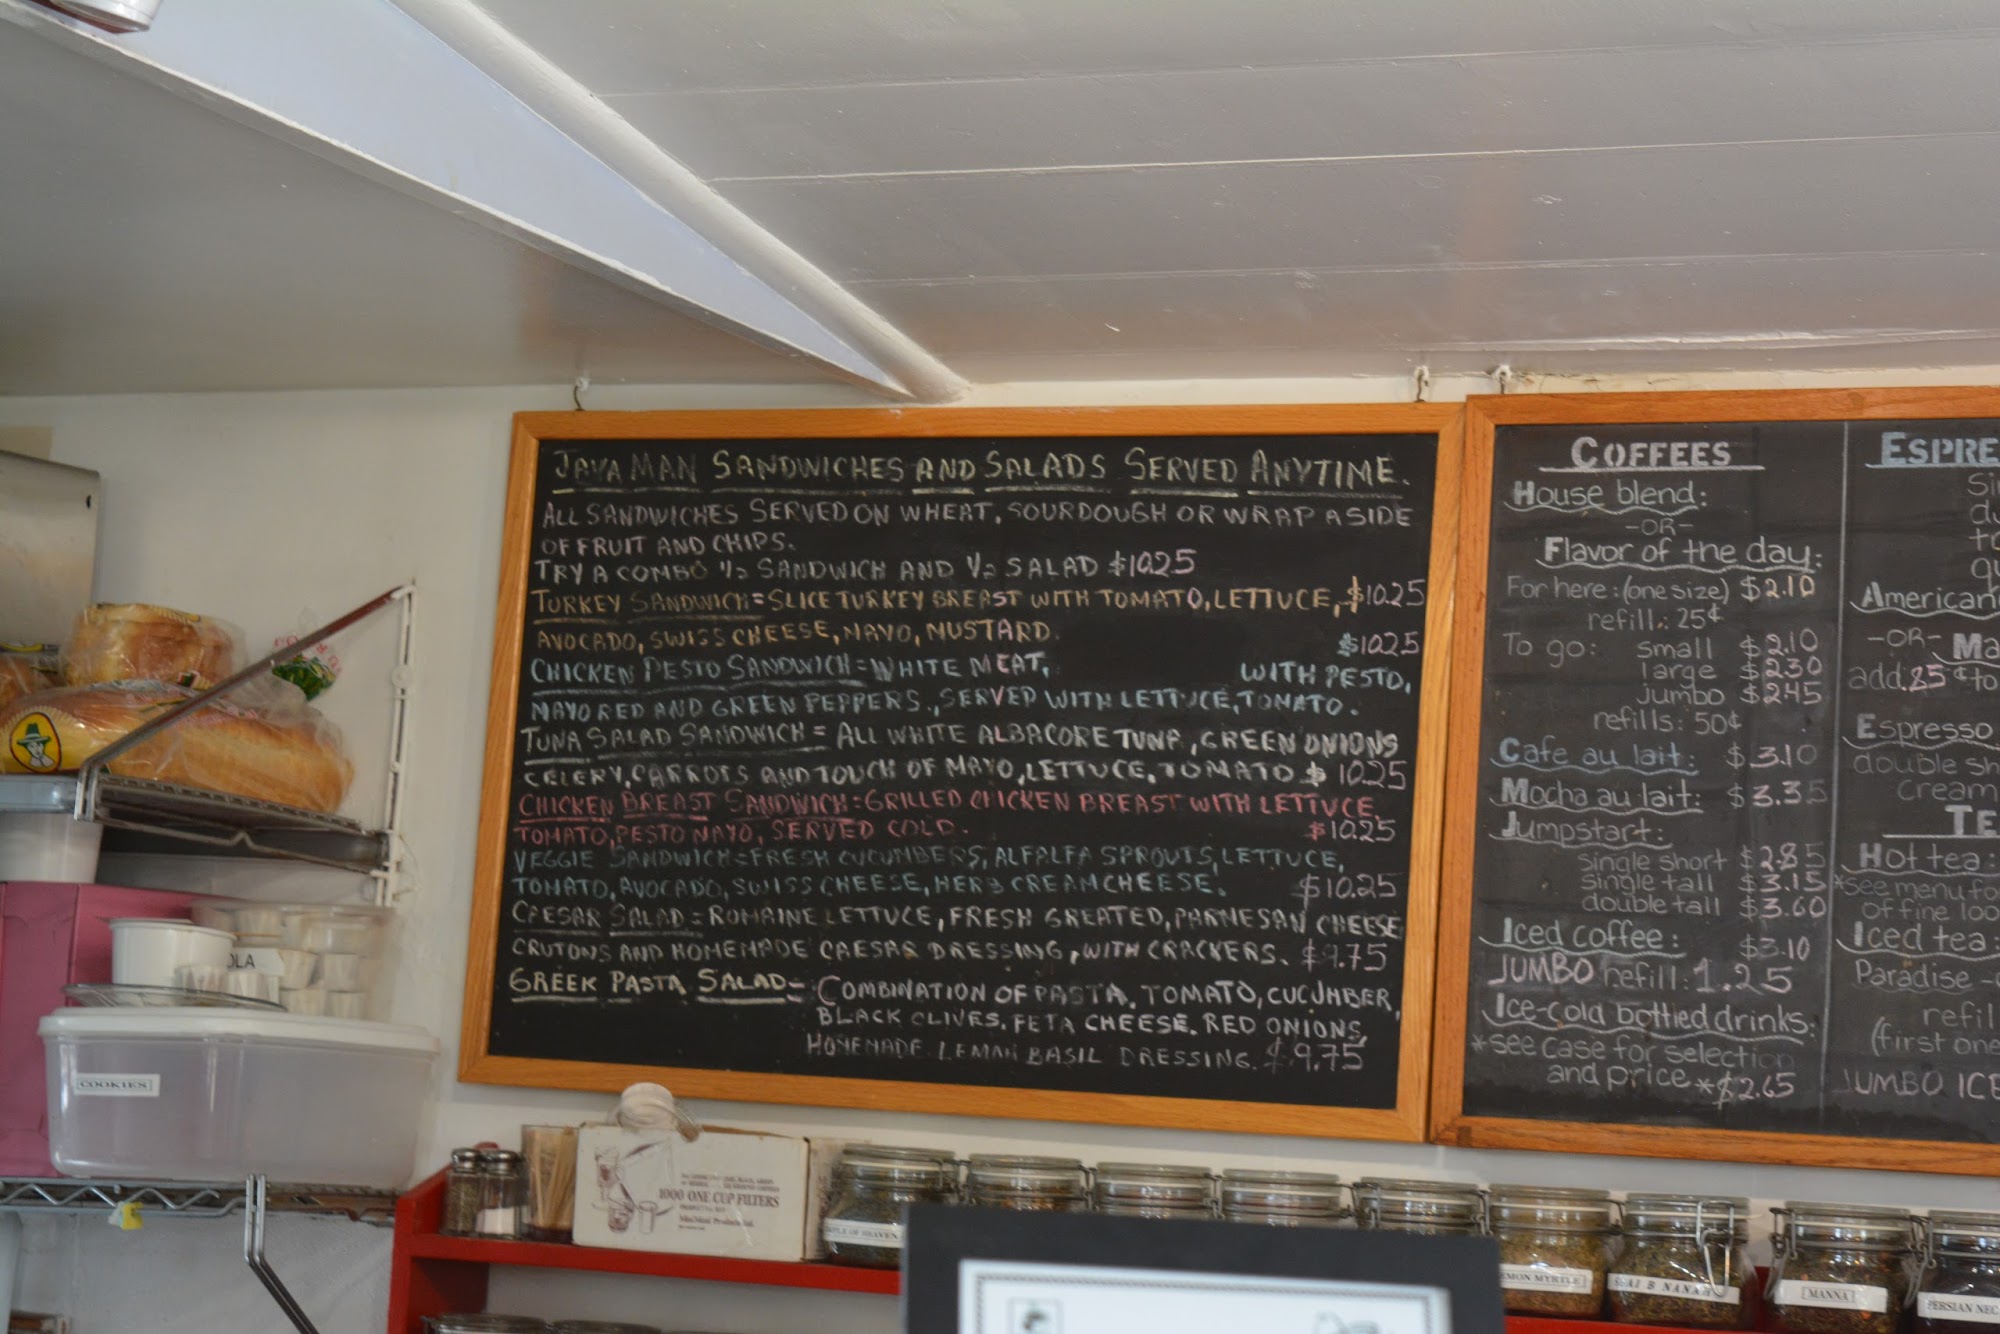 JAVA MAN SANDWICHES AND SALADS SERVED ANYTIME.
ALL SANDWICHES SERVED ON WHEAT, SOURDOUGH OR WRAP A SIDE
OF FRUIT AND CHIPS.
TRY A COMBO ½ SANDWICH AND ½ SALAD $10.25
TURKEY SANDWICH=SLICE TURKEY BREAST WITH TOMATO, LETTUCE, $10.25
AVOCADO, SWISS CHEESE, MAYO, MUSTARD.
$10.25
CHICKEN PESTO SANDWICH=WHITE MEAT, WITH PESTO,
MAYO RED AND GREEN PEPPERS., SERVED WITH LETTUCE, TOMATO.
TUNA SALAD SANDWICH= ALL WHITE ALBACORE TUNA, GREEN ONIONS
CELERY, CARROTS AND TOUCH OF MAYO, LETTUCE, TOMATO $ 10.25
CHICKEN BREAST SANDWICH=GRILLED CHICKEN BREAST WITH LETTUCE,
TOMATO, PESTO MAYO, SERVED COLD. $10.25
VEGGIE SANDWICH=FRESH CUCUMBERS, ALFALFA SPROUTS, LETTUCE,
TOMATO, AVOCADO, SWISS CHEESE, HERB CREAM CHEESE. $10.25
CAESAR SALAD=ROMAINE LETTUCE, FRESH GREATED, PARMESAN CHEESE
CRUTONS AND HOMEMADE CAESAR DRESSING, WITH CRACKERS. $9.75
GREEK PASTA SALAD= COMBINATION OF PASTA, TOMATO, CUCUMBER,
BLACK OLIVES, FETA CHEESE, RED ONIONS,
HOMEMADE LEMAN BASIL DRESSING. $9.75
COFFEES
House blend:
-OR-
Flavor of the day:
For here: (one size) $2.10
refill: 25¢
To go: small $2.10
large $2.30
jumbo $2.45
refills: 50¢
Cafe au lait: $3.10
Mocha au lait: $3.35
Jumpstart:
single short $2.85
single tall $3.15
double tall $3.60
Iced coffee: $3.10
JUMBO refill: 1.25
Ice-cold bottled drinks:
*see case for selection
and price *$2.65
ESPRE
Si
du
to
qu
American
-OR- Ma
add .25¢ to
Espresso
double sh
cream
TE
Hot tea:
*see menu fo
of fine loo
Iced tea:
Paradise -
refil
(first one
JUMBO ICE
OLA
COOKIES
1000 ONE CUP FILTERS
PLE OF HEAVEN
EMON MYRTLE
AI B NANA
MANNA
PERSIAN NEC